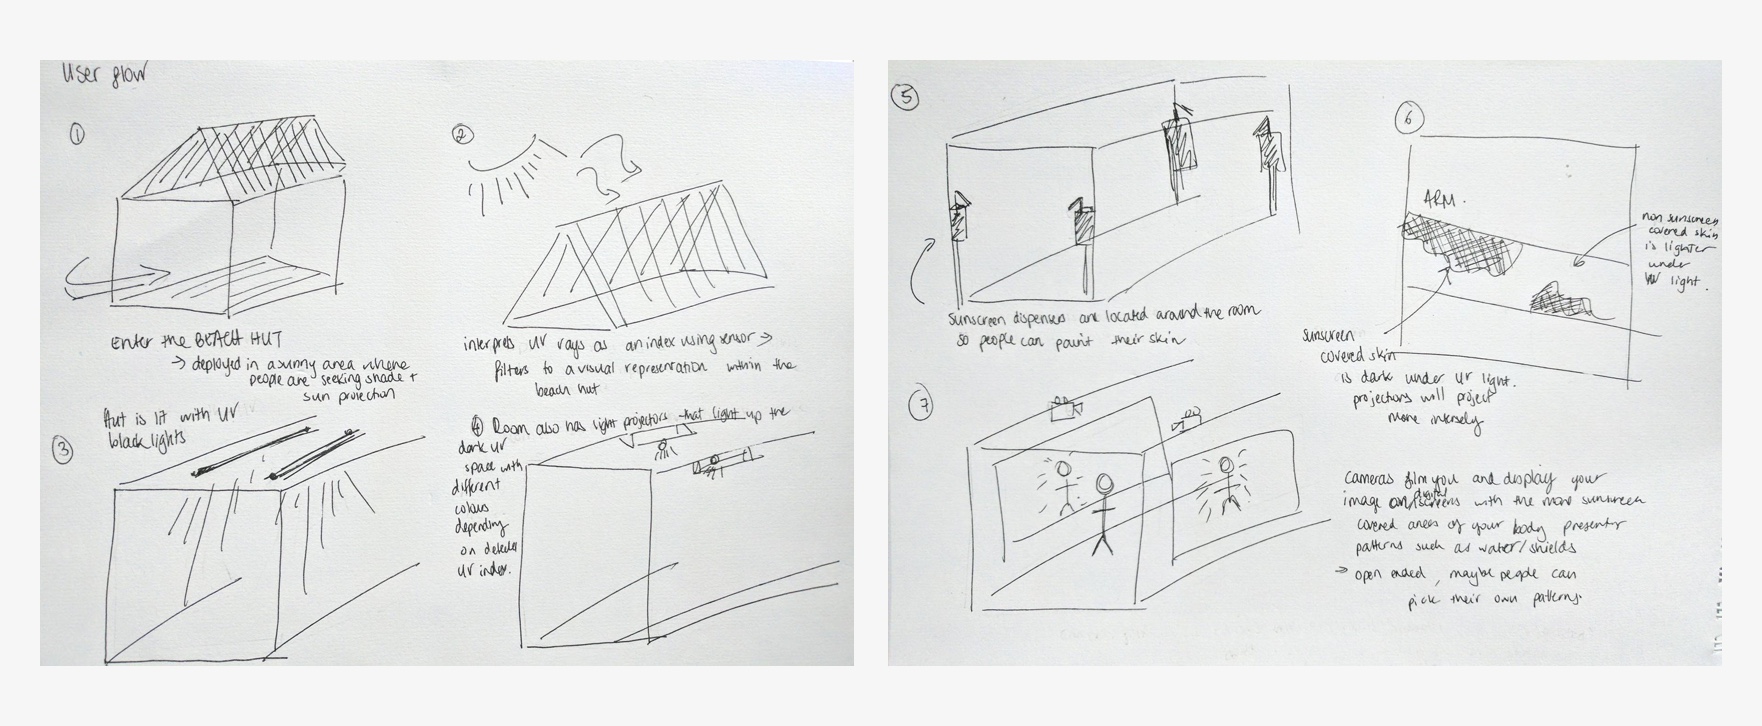 User flow
①
Enter the BEACH HUT
→ deployed in a sunny area where
people are seeking shade +
sun protection
②
interprets UV rays as an index using sensor →
filters to a visual representation within the
beach hut
③
Hut is lit with UV
black lights
④ Room also has light projectors that light up the
dark UV
space with
different
colours
depending
on detected
UV index.
⑤
Sunscreen dispensers are located around the room
so people can paint their skin
⑥
ARM.
non sunscreen
covered skin
is lighter
under
UV light.
sunscreen
covered skin
is dark under UV light.
projectors will project
more intensely
⑦
Cameras film you and display your
image on digital screens with the more sunscreen
covered areas of your body presenting
patterns such as water/shields
→ open ended, maybe people can
pick their own patterns.